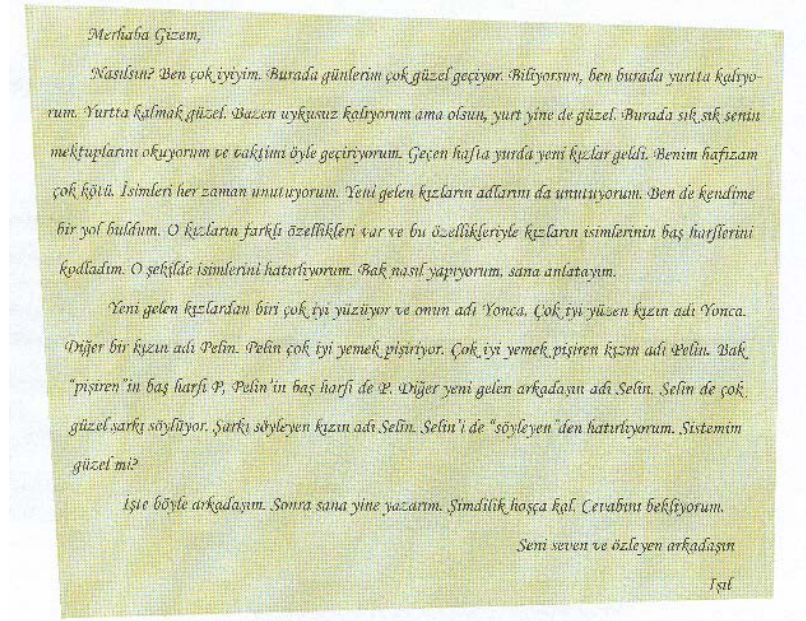 Merhaba Gizem,
Nasılsın? Ben çok iyiyim. Burada günlerim çok güzel geçiyor. Biliyorsun, ben burada yurtta kalıyo-
rum. Yurtta kalmak güzel. Bazen uykusuz kalıyorum ama olsun, yurt yine de güzel. Burada sık sık senin
mektuplarını okuyorum ve vaktimi öyle geçiriyorum. Geçen hafta yurda yeni kızlar geldi. Benim hafızam
çok kötü. İsimleri her zaman unutuyorum. Yeni gelen kızların adlarını da unutuyorum. Ben de kendime
bir yol buldum. O kızların farklı özellikleri var ve bu özellikleriyle kızların isimlerinin baş harflerini
kodladım. O şekilde isimlerini hatırlıyorum. Bak nasıl yapıyorum, sana anlatayım.
Yeni gelen kızlardan biri çok iyi yüzüyor ve onun adı Yonca. Çok iyi yüzen kızın adı Yonca.
Diğer bir kızın adı Pelin. Pelin çok iyi yemek pişiriyor. Çok iyi yemek pişiren kızın adı Pelin. Bak
"pişiren"in baş harfi P, Pelin'in baş harfi de P. Diğer yeni gelen arkadaşın adı Selin. Selin de çok
güzel şarkı söylüyor. Şarkı söyleyen kızın adı Selin. Selin'i de "söyleyen"den hatırlıyorum. Sistemim
güzel mi?
İşte böyle arkadaşım. Sonra sana yine yazarım. Şimdilik hoşça kal. Cevabını bekliyorum.
Seni seven ve özleyen arkadaşın
Işıl